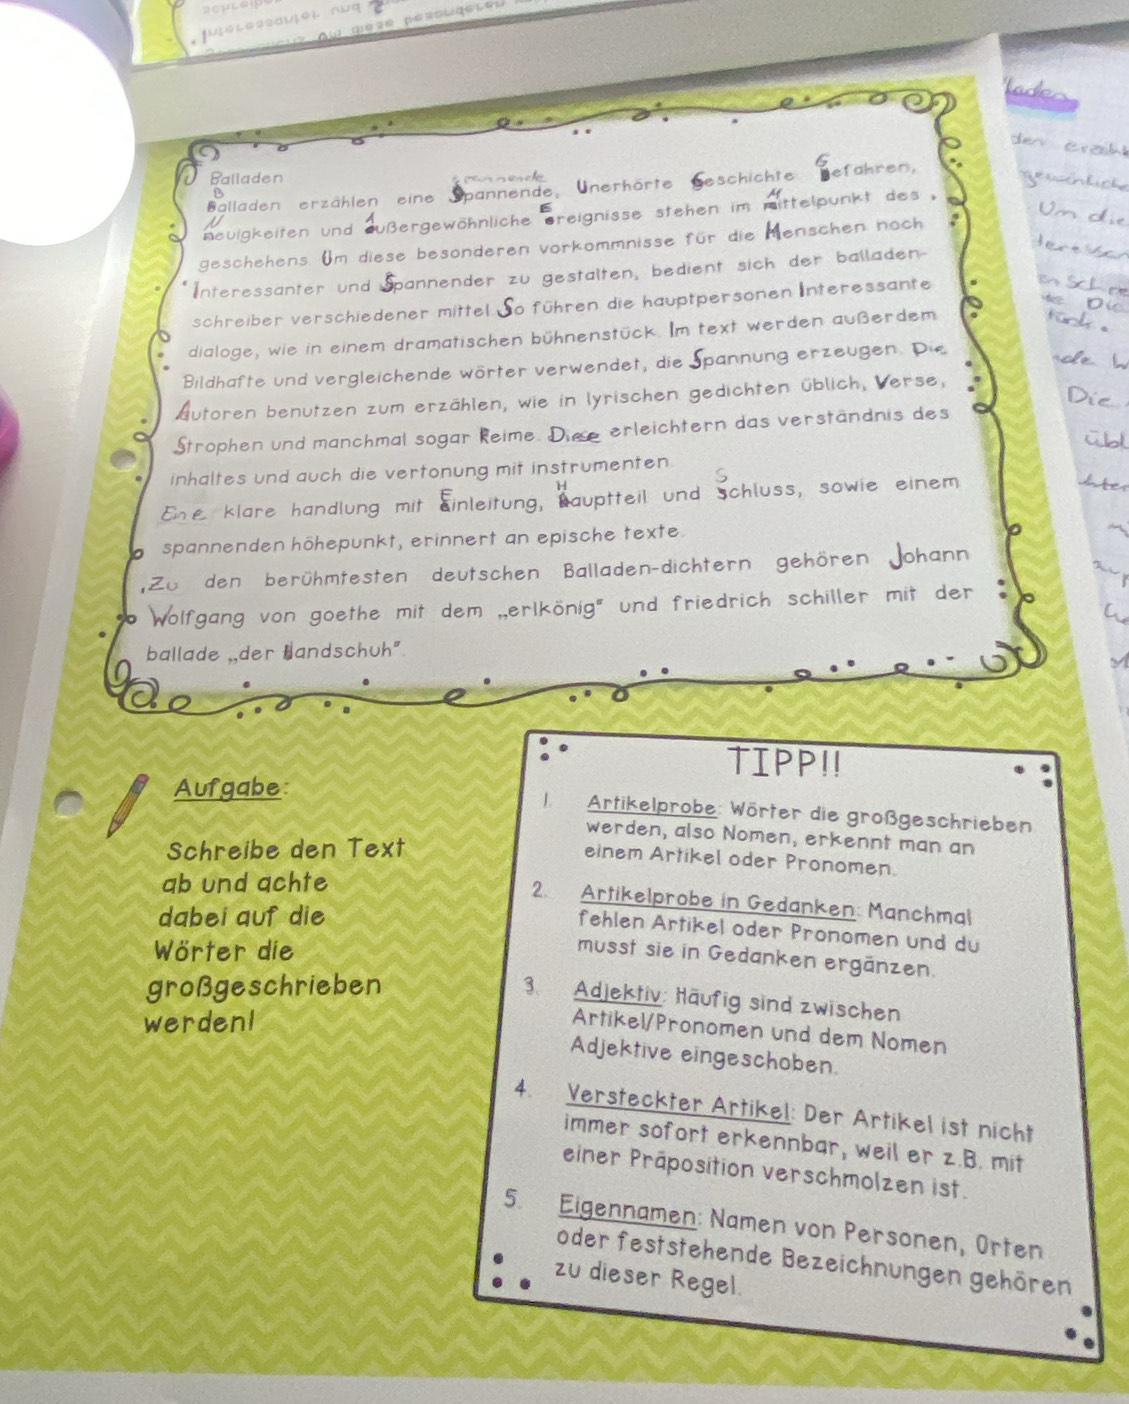 Interessanter und
diese besonderen
Balladen
Balladen erzählen eine Spannende, Unerhörte Geschichte. Gefahren,
Neuigkeiten und Außergewöhnliche Ereignisse stehen im Mittelpunkt des
geschehens. Um diese besonderen vorkommnisse für die Menschen noch
Interessanter und Spannender zu gestalten, bedient sich der balladen-
schreiber verschiedener mittel. So führen die hauptpersonen Interessante
dialoge, wie in einem dramatischen bühnenstück. Im text werden außerdem
Bildhafte und vergleichende wörter verwendet, die Spannung erzeugen. Die
Autoren benutzen zum erzählen, wie in lyrischen gedichten üblich, Verse,
Strophen und manchmal sogar Reime. Diese erleichtern das verständnis des
inhaltes und auch die vertonung mit instrumenten.
Eine klare handlung mit Einleitung, Hauptteil und Schluss, sowie einem
spannenden höhepunkt, erinnert an epische texte.
Zu den berühmtesten deutschen Balladen-dichtern gehören Johann
Wolfgang von goethe mit dem „erlkönig" und friedrich schiller mit der
ballade „der Handschuh".
Aufgabe:
Schreibe den Text
ab und achte
dabei auf die
Wörter die
großgeschrieben
werden!
TIPP!!
1. Artikelprobe: Wörter die großgeschrieben
werden, also Nomen, erkennt man an
einem Artikel oder Pronomen.
2. Artikelprobe in Gedanken: Manchmal
fehlen Artikel oder Pronomen und du
musst sie in Gedanken ergänzen.
3. Adjektiv: Häufig sind zwischen
Artikel/Pronomen und dem Nomen
Adjektive eingeschoben.
4. Versteckter Artikel: Der Artikel ist nicht
immer sofort erkennbar, weil er z.B. mit
einer Präposition verschmolzen ist.
5. Eigennamen: Namen von Personen, Orten
oder feststehende Bezeichnungen gehören
zu dieser Regel.
Um die
Die